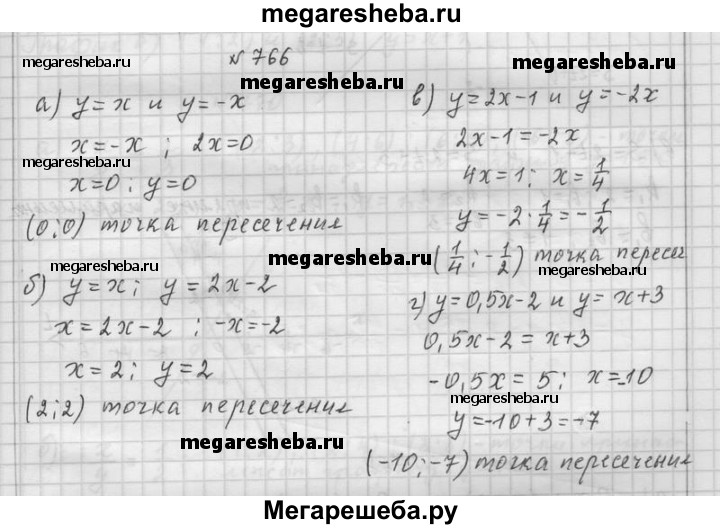 megaresheba.ru
№ 766
megaresheba.ru
megaresheba.ru
megaresheba.ru
а) y=x и y=-x
x=-x ; 2x=0
megaresheba.ru
x=0 ; y=0
(0;0) точка пересечения
megaresheba.ru
megaresheba.ru
б) y=x; y=2x-2
x=2x-2 ; -x=-2
x=2; y=2
(2;2) точка пересечения
megaresheba.ru
в) y=2x-1 и y=-2x
2x-1=-2x
megaresheba.ru
4x=1; x=1/4
y=-2·1/4=-1/2
(1/4;-1/2) точка пересеч
megaresheba.ru
г) y=0,5x-2 и y=x+3
0,5x-2=x+3
-0,5x=5; x=-10
megaresheba.ru
y=-10+3=-7
(-10;-7) точка пересечения
Мегарешеба.ру